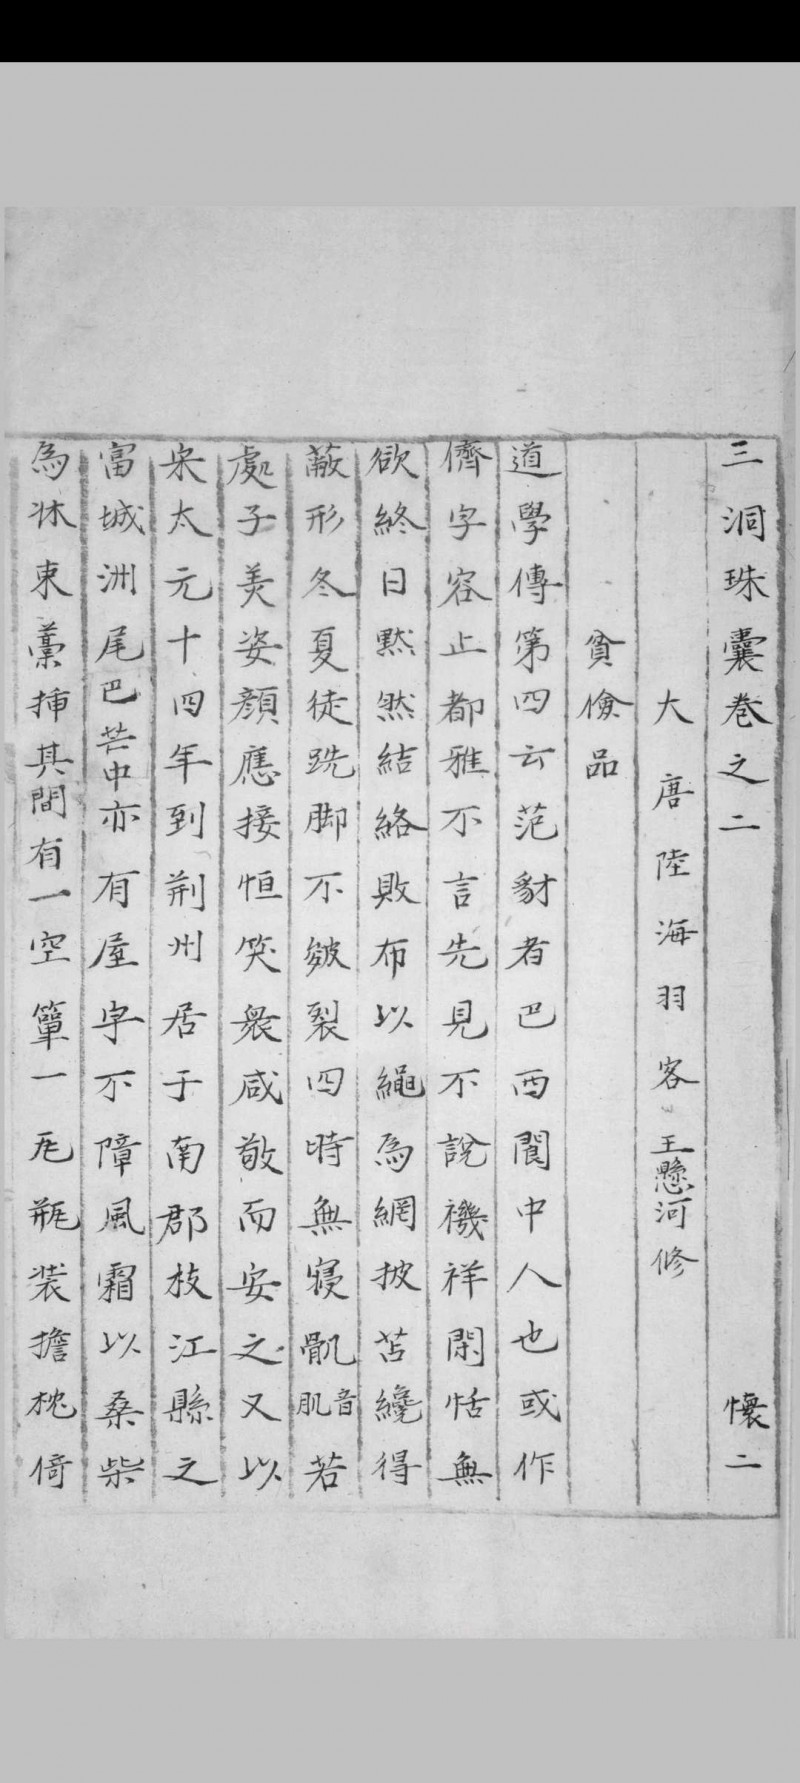 三洞珠囊卷之二　懷二
大唐陸海羽客王懸河修
貧儉品
道學傳第四云范豺者巴西閬中人也或作
儕字容止都雅不言先見不說禨祥閑恬無
欲終日黙然結絡敗布以繩為網披苫纔得
蔽形冬夏徒跣脚不皴裂四時無寢骩肌音若
處子美姿顏應接恒笑衆咸敬而安之又以
宋太元十四年到荆州居于南郡枝江縣之
富城洲尾巴芒中亦有屋字不障風霜以桑柴
為牀東藁揷其間有一空簞一瓦瓶装擔枕倚